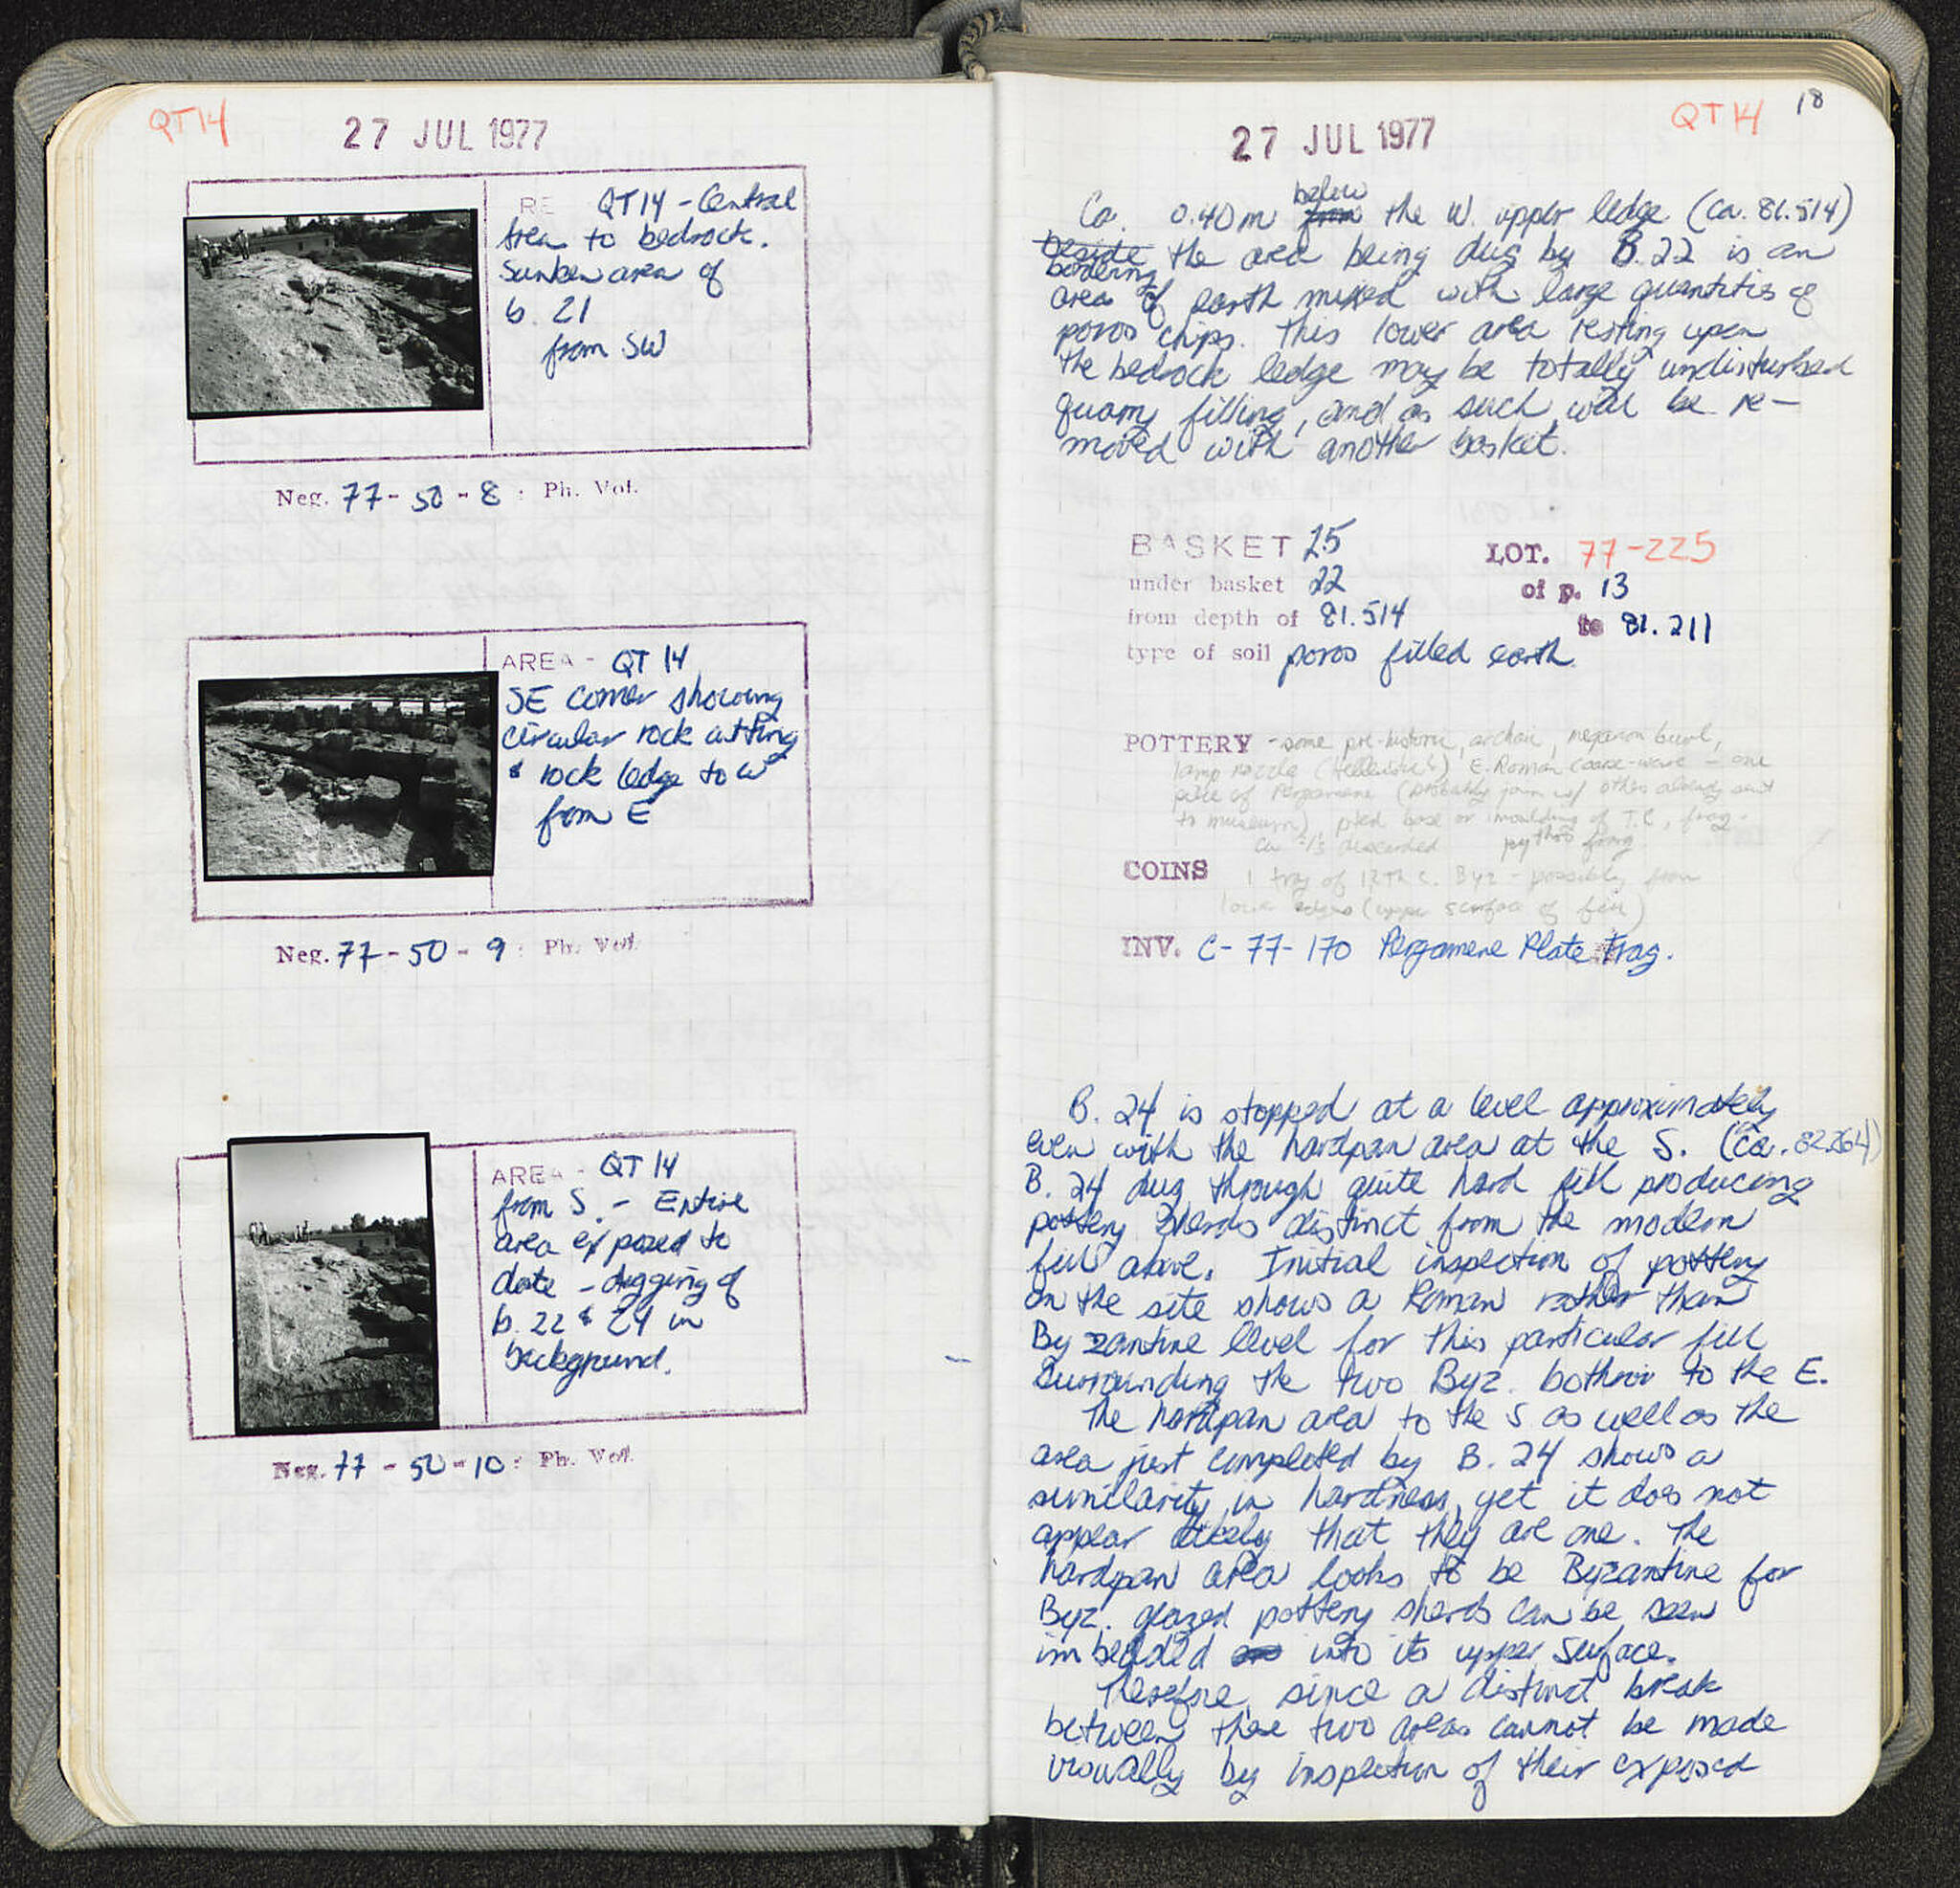 QT14
27 JUL 1977
RE QT14 - Central
Area to bedrock.
Sunken area of
b. 21
from SW
Neg. 77-50-8: Ph. Vol.
AREA - QT 14
SE corner showing
circular rock cutting
& rock ledge to W
from E
Neg. 77-50-9: Ph. Vol.
AREA - QT 14
from S. - Entire
area exposed to
date - digging of
b. 22 & 24 in
background.
Neg. 77-50-10: Ph. Vol.
QT14 18
27 JUL 1977
below
Ca. 0.40m from the W. upper ledge (ca. 81.514)
beside the area being dug by B. 22 is an
bordering
area of earth mixed with large quantities of
poros chips. This lower area resting upon
the bedrock ledge may be totally undisturbed
quarry filling, and as such will be re-
moved with another basket.
BASKET 25 LOT. 77-225
under basket 22 of p. 13
from depth of 81.514 to 81.211
type of soil poros filled earth
POTTERY - some pre-historic, archaic, megarian bowl,
lamp nozzle (Hellenistic) E. Roman coarse-ware - one
piece of Pergamene (probably join w/ other already sent
to museum), base or moulding of T.C., frag.
discarded pythos frag.
COINS 1 tray of 12th c. Byz - possibly from
edges (upper surface of fill)
INV. C-77-170 Pergamene Plate Frag.
B. 24 is stopped at a level approximately
even with the hardpan area at the S. (ca. 82.264)
B. 24 dug through quite hard fill producing
pottery sherds distinct from the modern
fill above. Initial inspection of pottery
on the site shows a Roman rather than
Byzantine level for this particular fill
surrounding the two Byz. bothroi to the E.
The hardpan area to the S as well as the
area just completed by B. 24 shows a
similarity in hardness, yet it does not
appear likely that they are one. The
hardpan area looks to be Byzantine for
Byz. glazed pottery sherds can be seen
imbedded into its upper surface.
Therefore, since a distinct break
between these two areas cannot be made
visually by inspection of their exposed